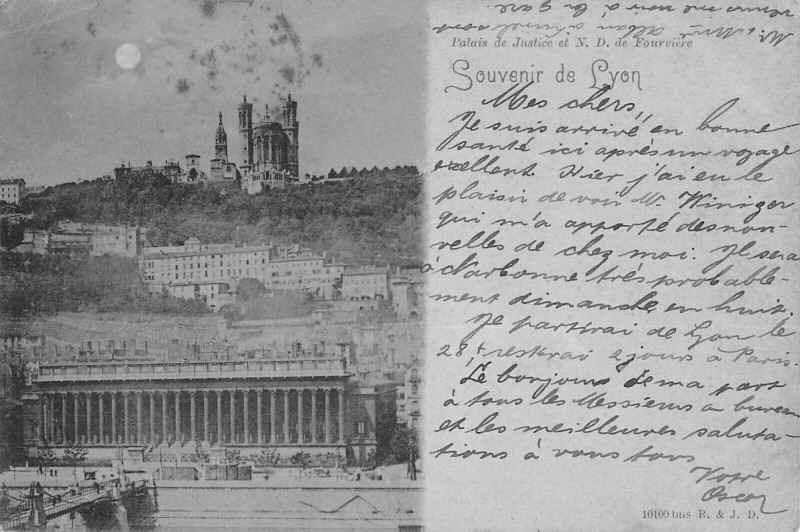 venus me voir à la gare.
Mr. & Mme Alban Simmel sont
Palais de Justice et N. D. de Fourvière
Souvenir de Lyon
Mes chers,
Je suis arrivé en bonne
santé ici après un voyage
exellent. Hier j'ai eu le
plaisir de voir Mr. Winiger
qui m'a apporté des nou-
velles de chez moi. Il sera
à Narbonne très probable-
ment dimanche en huit.
Je partirai de Lyon le
28 & resterai 2 jours à Paris.
Le bonjour de ma part
à tous les Messieurs au bureau
et les meilleures saluta-
tions à vous tous
Votre
Oscar
10100 bns R. & J. D.